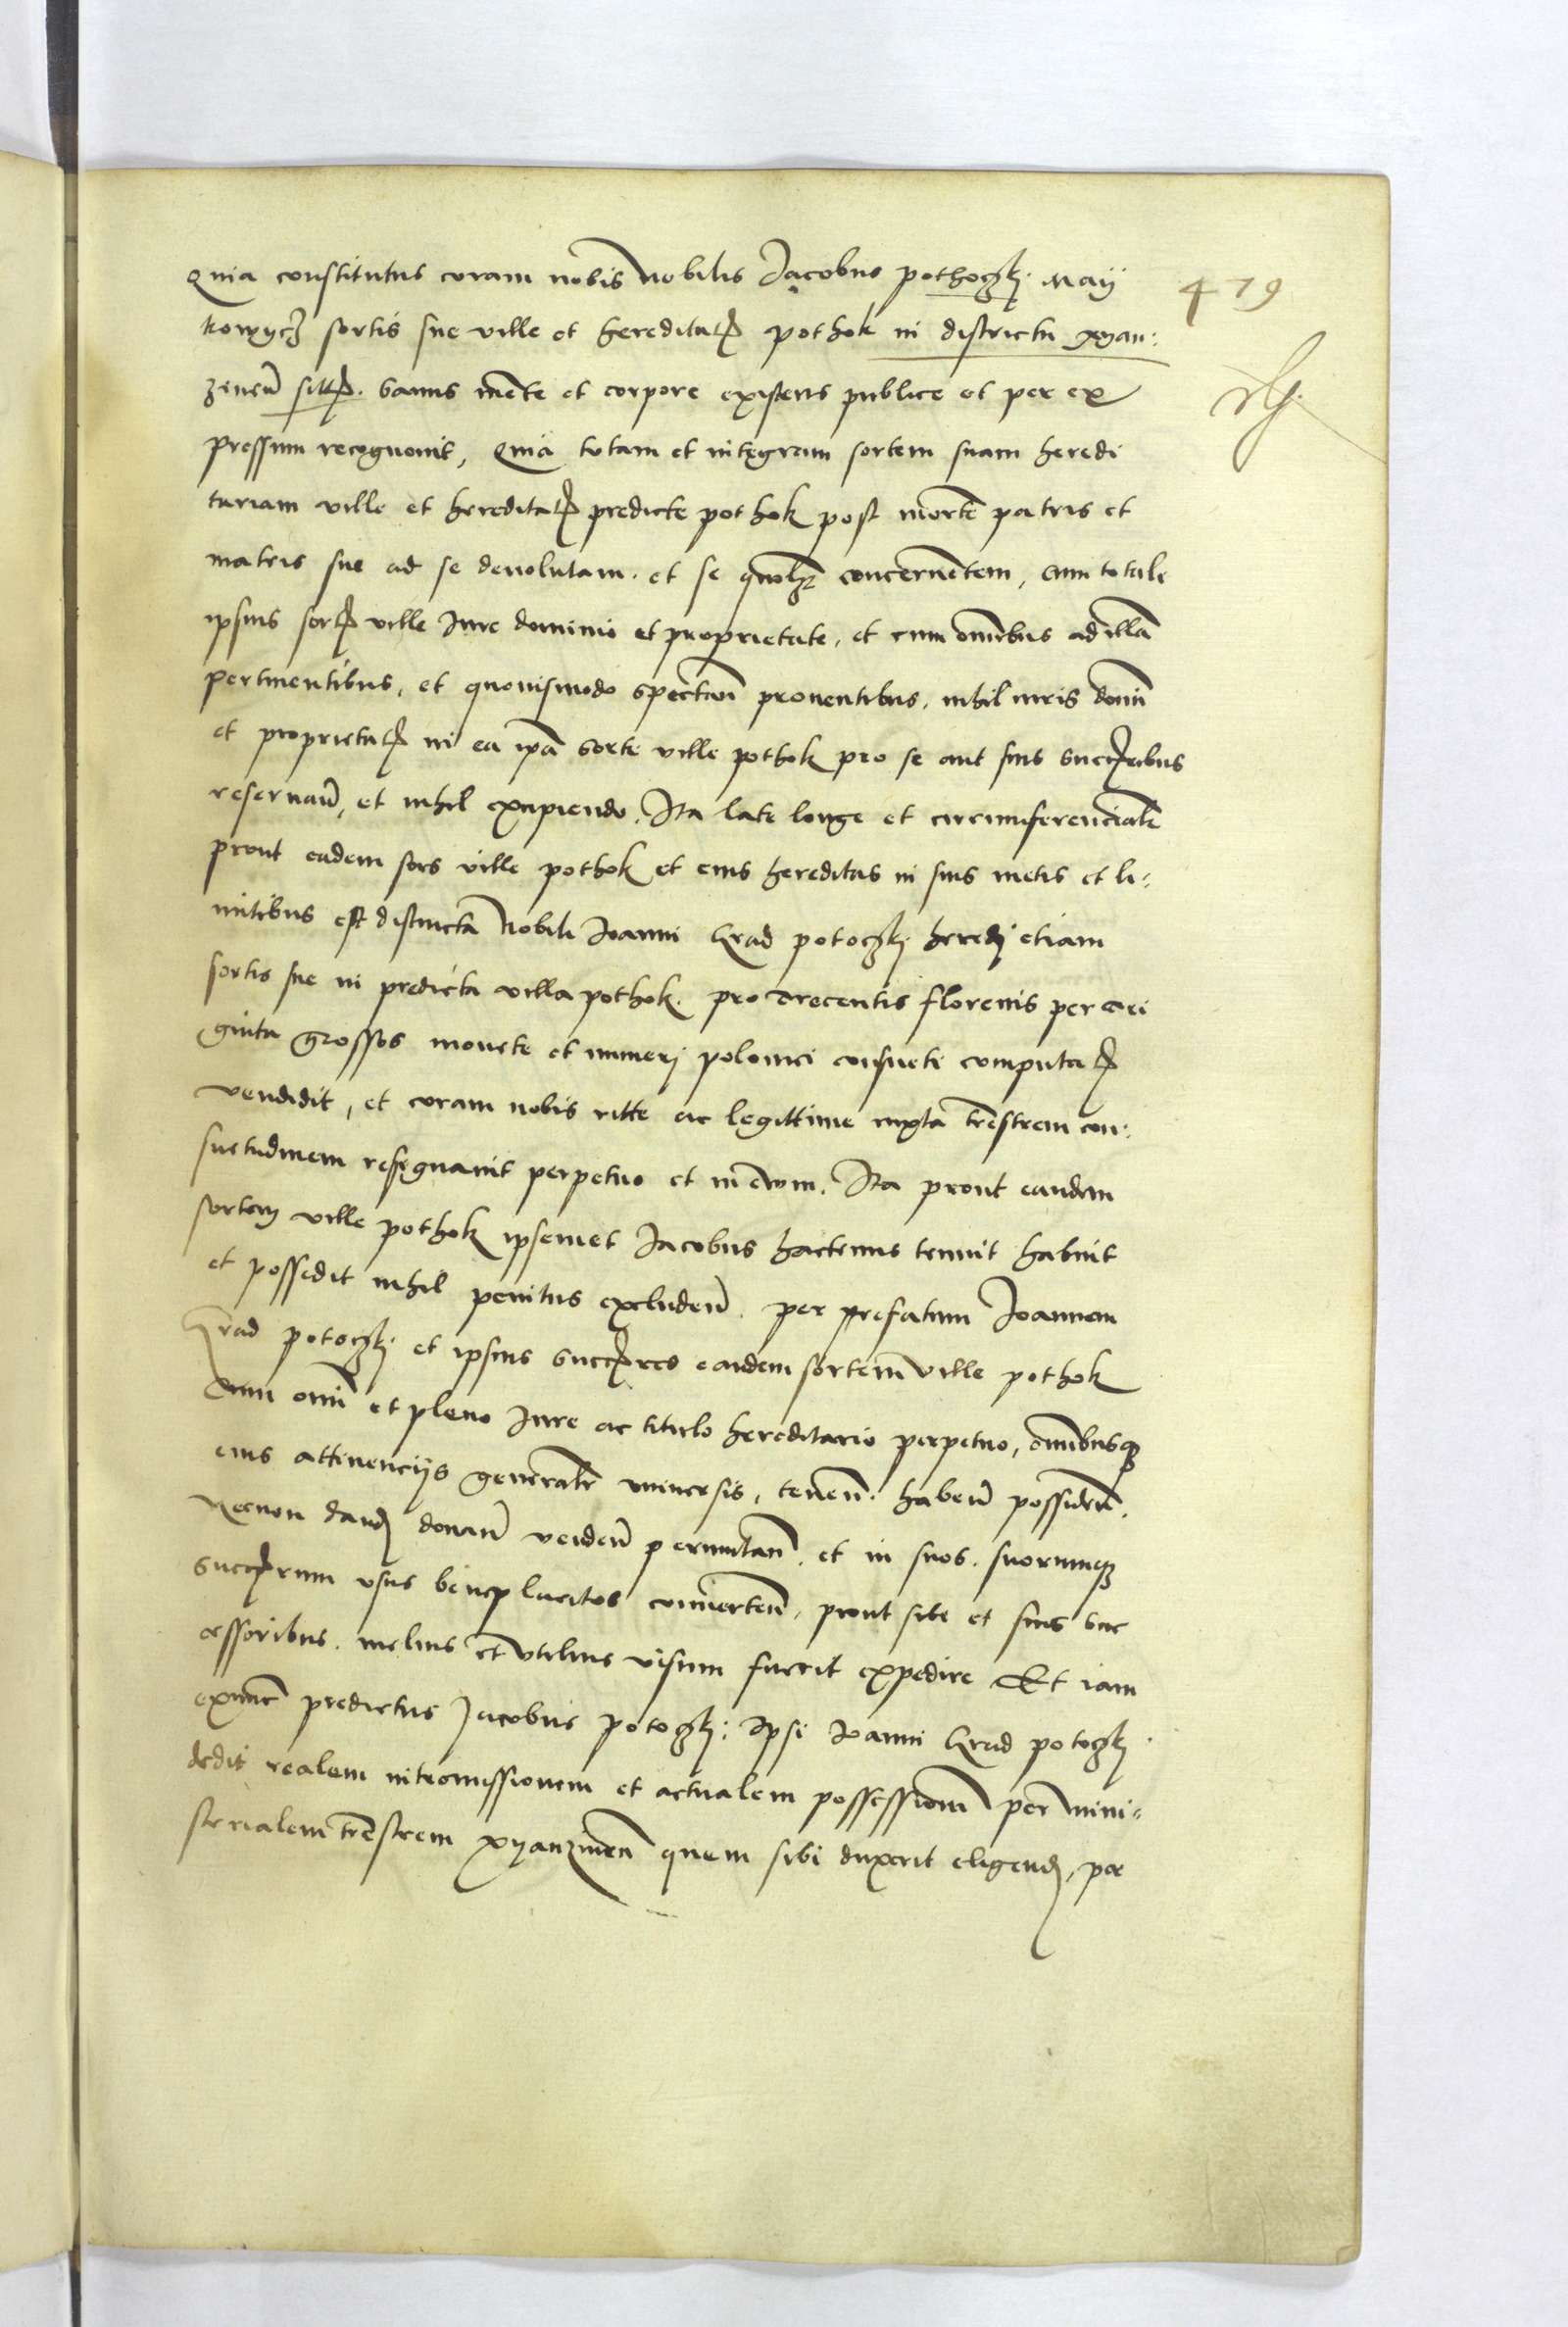 Quia constitutus coram nobis Nobilis Jacobus pothoczkj May 479
kowycz sortis sue ville et hereditatis pothok in districtu xyan:
zinen sitte. Sanus mente et corpore existens publice et per ex
pressum recognouit, Quia totam et integram sortem suam heredi
tariam ville et hereditatis predicte pothok post mortem patris et
matris sue ad se deuolutam. et se quolibet concernentem, cum totali
ipsius sortis ville Jure dominio et proprietate, et cum omnibus ad illam
pertinentibus, et quouismodo spectan prouentibus, nihil iuris domini
et proprietatis in ea ipsa Sorte ville pothok pro se aut suis successoribus
reseruan, et nihil excipiendo. Ita late longe et circumferencialiter
prout eadem sors ville pothok et eius hereditas in suis metis et li:
mitibus est distincta Nobili Joanni potoczkj heredj etiam
sortis sue in predicta villa pothok. pro Trecentis florenis per tri
ginta grossos monete et numerj polonici consueti computatis
vendidit, et coram nobis ritte ac legittime iuxta terrestrem con:
suetudinem resignauit perpetuo et in ewm. Ita prout eandem
sortem ville pothok ipsemet Jacobus hactenus tenuit habuit
et possedit nihil penitus excluden. per prefatum Joannem
potoczkj et ipsius successores eandem sortem ville pothok
Cum omni et pleno Jure ac titulo hereditario perpetuo, omnibusque
eius attinencijs generaliter uniuersis, tenen. haben possiden.
Necnon dandj donan venden permutan. et in suos. suorumque
successorum vsus beneplacitos conuerten, prout sibi et suis suc
cessoribus. melius et vtilius visum fuerit expedire Et iam
exnunc predictus Jacobus potoczkj: Ipsi Joanni potoczkj.
dedit realem intromissionem et actualem possessionem per mini:
sterialem terrestrem xyanzinen quem sibi duxerit eligendj, per